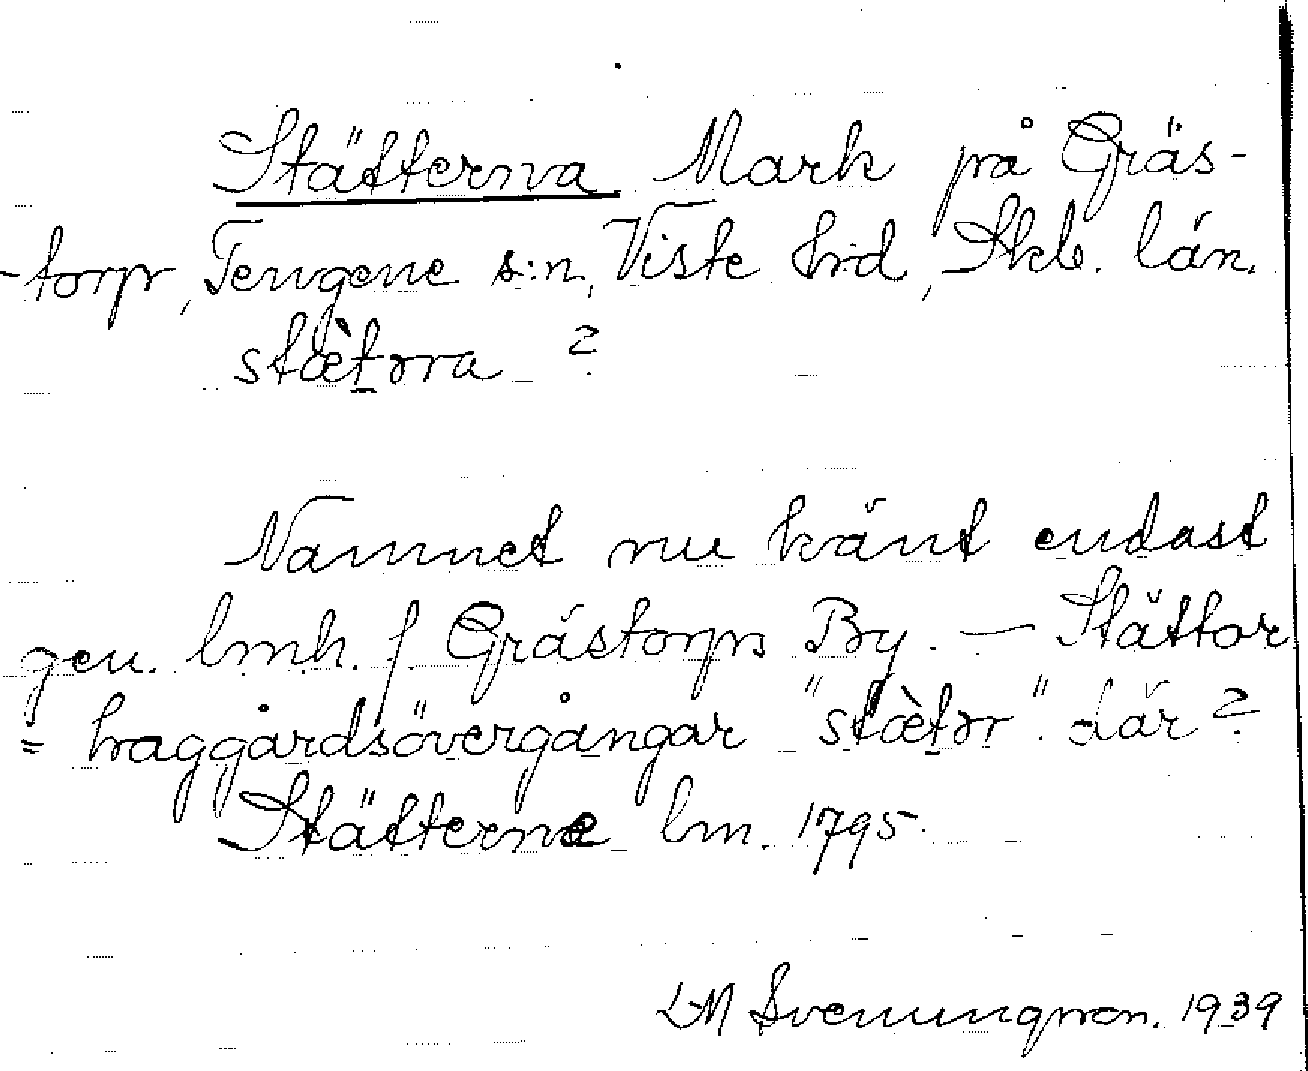 Stätterna Mark på Gräs-
-torp, Tengene s:n, Viste hrd, Skb. län.
stæ̀tərra ?
Namnet nu känt endast
gen. lmh. f Grästorps By. — Stättor
= haggårdsövergångar "stæ̀tər". där ?
Stätterne lm. 1795.
LM Svenungsson. 1939